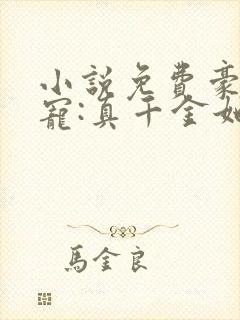 小説免費豪
寵:真千金她
馬金良